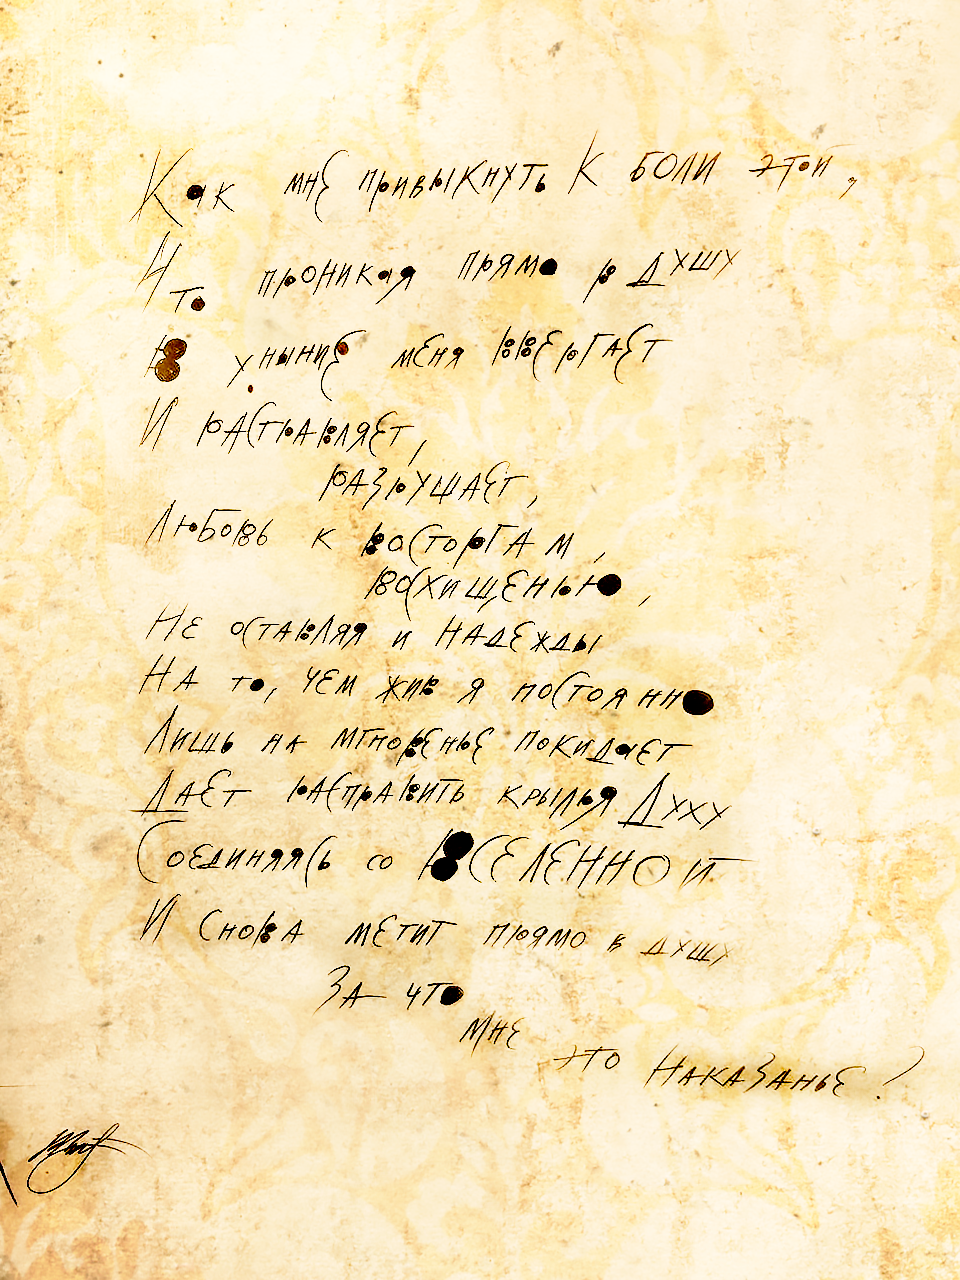 Как мне привыкнуть к боли этой,
Что проникая прямо в душу
В уныние меня ввергает
И растравляет,
разрушает,
Любовь к восторгам,
восхищенью,
Не оставляя и надежды
На то, чем жив я постоянно
Лишь на мгновенье покидает
Дает расправить крылья Духу
Соединяясь со Вселенной
И снова метит прямо в душу
За что
мне
это наказанье?